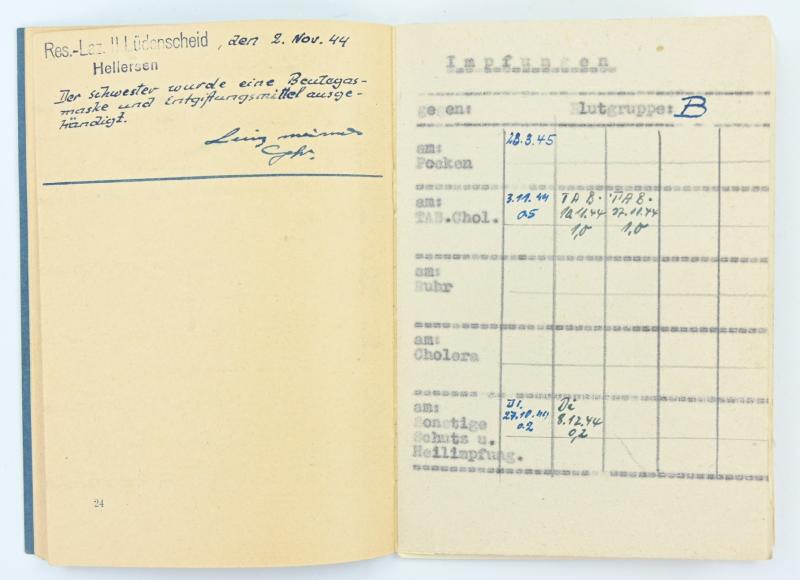 Res.-Laz. II Lüdenscheid, den 2. Nov. 44
Hellersen
Der Schwester wurde eine Beutegas-
maske und Entgiftungsmittel ausge-
händigt.
24
Impfungen
gegen: Blutgruppe: B
am: 28.3.45
Pocken
am: 3.11.44 TAB. TAB.
TAB.Chol. 0,5 10.11.44 17.11.44
1,0 1,0
am:
Ruhr
am:
Cholera
am: Di. Di
Sonstige 27.10.44 8.12.44
Schutz u. 0.2 0,2
Heilimpfung.